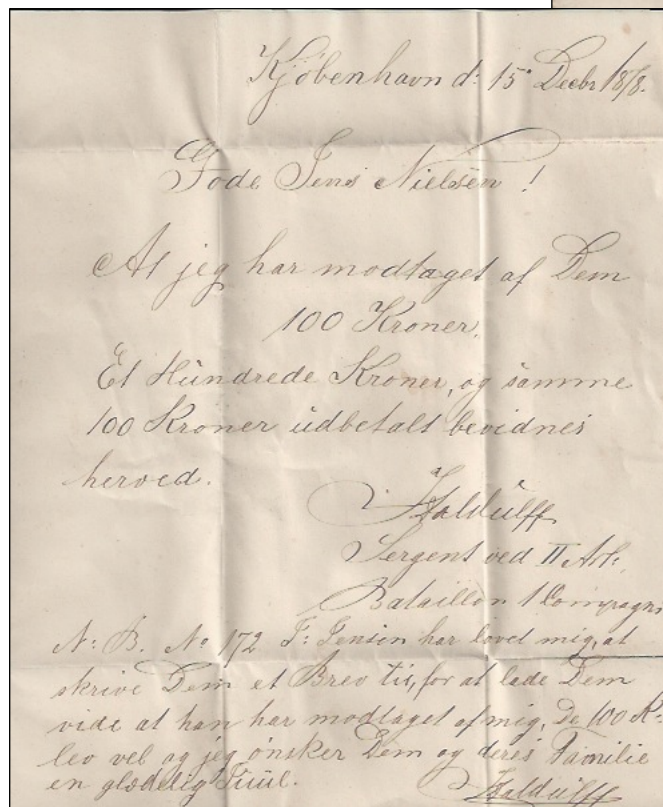 Kjøbenhavn d: 15 Decbr 1878.
Gode Jens Nielsen !
At jeg har modtaget af Dem
100 Kroner.
Et Hundrede Kroner, og samme
100 Kroner udbetalt bevidnes
herved.
Sergent ved II Art:
Bataillon 1 Compagni
N: B. No 172 J: Jensen har lovet mig, at
skrive Dem et Brev til, for at lade Dem
vide at han har modtaget af mig, De 100 Kr:
lev vel og jeg ønsker Dem og deres Familie
en glædelig Juul.